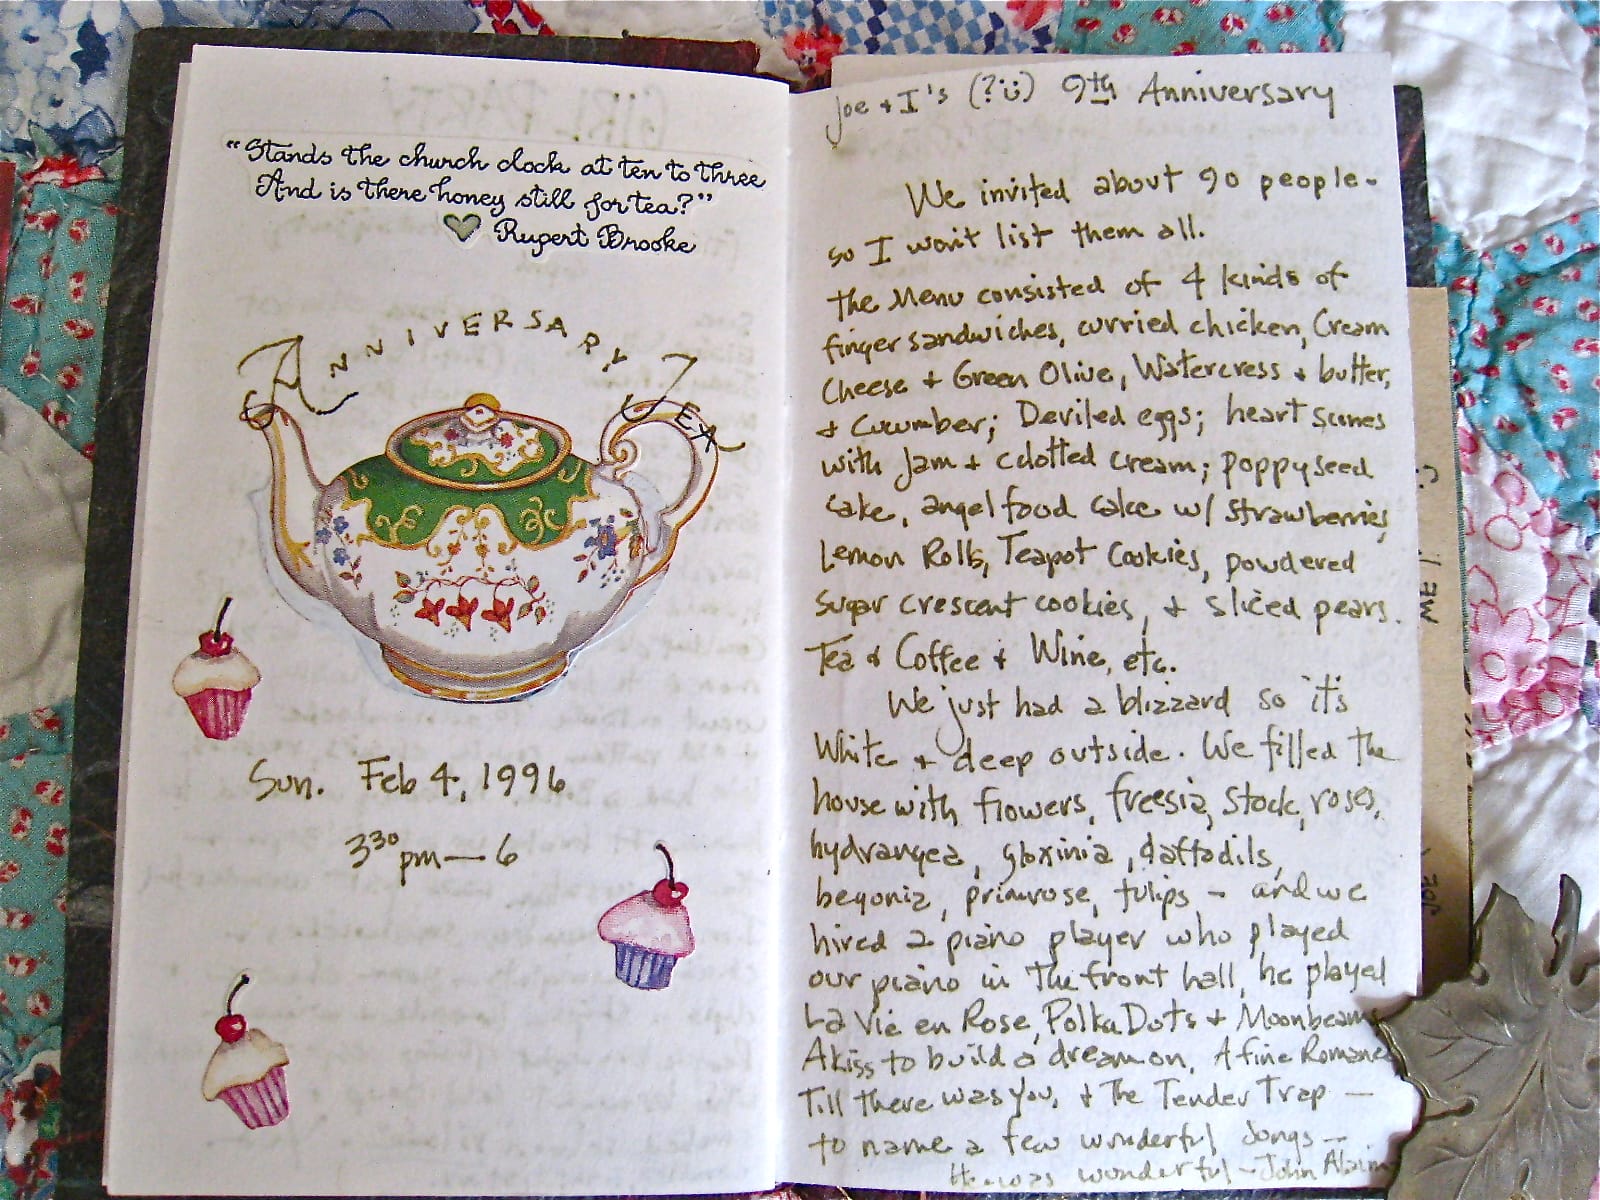 "Stands the church clock at ten to three
And is there honey still for tea?"
Rupert Brooke
ANNIVERSARY TEA
Sun. Feb 4, 1996
3³⁰ pm — 6
Joe & I's (?ü) 9th Anniversary
We invited about 90 people -
so I won't list them all.
the Menu consisted of 4 kinds of
finger sandwiches, curried chicken, Cream
Cheese & Green Olive, Watercress & butter,
& Cucumber; Deviled eggs; heart scones
with Jam & cdotted cream; poppyseed
cake, angel food cake w/ strawberries,
Lemon Rolls, Teapot Cookies, powdered
sugar crescent cookies, & sliced pears.
Tea & Coffee & Wine, etc.
We just had a blizzard so it's
White & deep outside. We filled the
house with flowers, freesia, stock, roses,
hydrangea, gloxinia, daffodils,
begonia, primrose, tulips – and we
hired a piano player who played
our piano in the front hall, he played
La Vie en Rose, Polka Dots & Moonbeams
A kiss to build a dream on, A fine Romance
Till there was you, & the Tender Trap —
to name a few wonderful songs –
He was wonderful – John